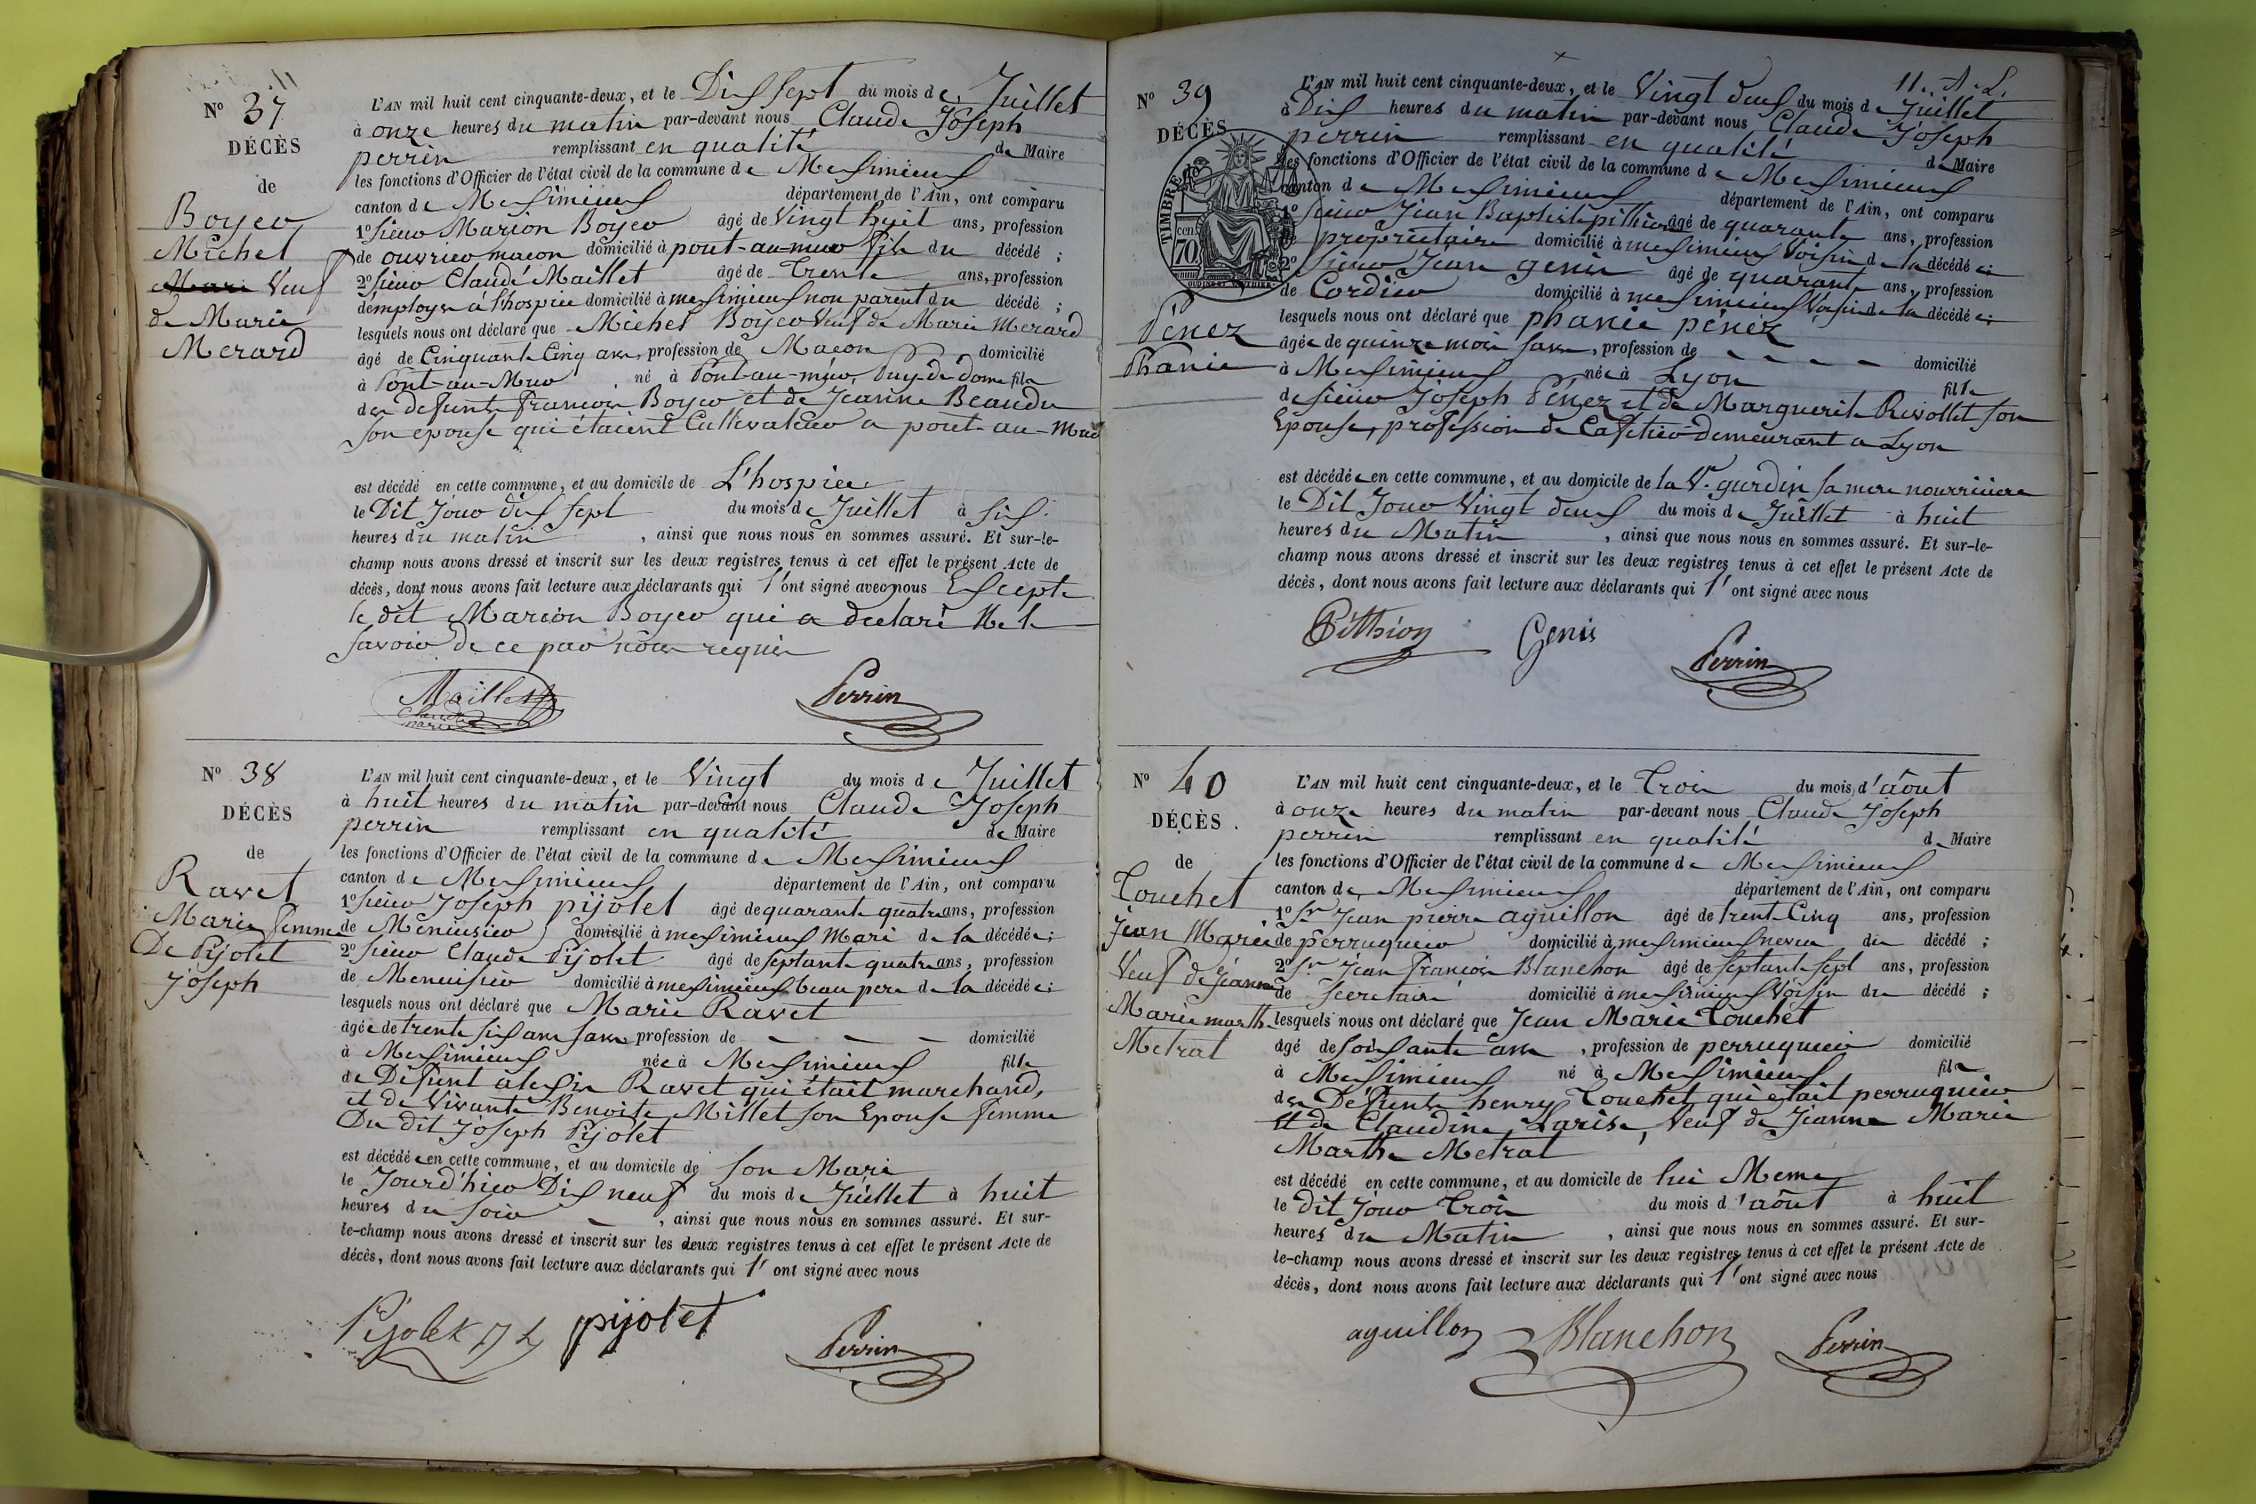 N° 37
DÉCÈS
de
Boyer
Michel
Mari Veuf
de Marie
Merard
L'AN mil huit cent cinquante-deux, et le Dix Sept du mois de Juillet
à onze heures du matin par-devant nous Claude Joseph
perrin remplissant en qualité de Maire
les fonctions d'Officier de l'état civil de la commune de Meximieux
canton de Meximieux département de l'Ain, ont comparu
1° Sieur Marion Boyer âgé de Vingt huit ans, profession
de ouvrier maçon domicilié à pont-au-mur fils du décédé ;
2° Sieur Claude Maillet âgé de Trente ans, profession
d'employer à l'hospice domicilié à meximieux non parent du décédé ;
lesquels nous ont déclaré que Michel Boyer Veuf de Marie Merard
âgé de Cinquante Cinq ans, profession de Maçon domicilié
à Pont-au-Mur, né à Pont-au-mur, Puy-de-Dome fils
des defunts François Boyer et de Jeanne Beaudu
son epouse qui étaient Cultivateur a pont-au-Mur
est décédé en cette commune, et au domicile de L'hospice
le Dit Jour dix sept du mois de Juillet à six
heures du matin, ainsi que nous nous en sommes assuré. Et sur-le-
champ nous avons dressé et inscrit sur les deux registres tenus à cet effet le présent Acte de
décès, dont nous avons fait lecture aux déclarants qui l'ont signé avec nous Excepté
le dit Marion Boyer qui a declaré Ne le
savoir de ce par nous requis
Maillet
Perrin
N° 38
DÉCÈS
de
Ravet
Marie femme
De Pijolet
Joseph
L'AN mil huit cent cinquante-deux, et le Vingt du mois de Juillet
à huit heures du matin par-devant nous Claude Joseph
perrin remplissant en qualité de Maire
les fonctions d'Officier de l'état civil de la commune de Meximieux
canton de Meximieux département de l'Ain, ont comparu
1° Sieur Joseph pijolet âgé de quarante quatre ans, profession
de Menuisier domicilié à meximieux Mari de la décédée ;
2° Sieur Claude Pijolet âgé de septante quatre ans, profession
de Menuisier domicilié à meximieux beau pere de la décédée ;
lesquels nous ont déclaré que Marie Ravet
âgée de trente six ans sans profession de domicilié
à Meximieux née à Meximieux fille
de Défunt alexis Ravet qui était marchand,
et de Vivante Benoite Millet son Epouse femme
Du dit Joseph Pijolet
est décédée en cette commune, et au domicile de son Mari
le Jourd'hier Dix neuf du mois de Juillet à huit
heures du soir, ainsi que nous nous en sommes assuré. Et sur-
le-champ nous avons dressé et inscrit sur les deux registres tenus à cet effet le présent Acte de
décès, dont nous avons fait lecture aux déclarants qui l'ont signé avec nous
Pijolet
pijolet
Perrin
N° 39
DÉCÈS
TIMBRE
70 cen
Pénez
Phanie
L'AN mil huit cent cinquante-deux, et le Vingt deux du mois de Juillet
à Dix heures du matin par-devant nous Claude Joseph
perrin remplissant en qualité de Maire
les fonctions d'Officier de l'état civil de la commune de Meximieux
canton de Meximieux département de l'Ain, ont comparu
1° Sieur Jean Baptiste pithion âgé de quarante ans, profession
de proprietaire domicilié à meximieux Voisin de la décédée ;
2° Sieur Jean genis âgé de quarante ans, profession
de Cordier domicilié à meximieux Voisin de la décédée ;
lesquels nous ont déclaré que phanie pénez
âgée de quinze mois sans, profession de domicilié
à Meximieux née à Lyon fille
de Sieur Joseph Pénez et de Marguerite Rivollet son
Epouse, profession de Cafetier demeurant a Lyon
est décédée en cette commune, et au domicile de la Ve gurdin sa mere nourriciere
le Dit Jour Vingt deux du mois de Juillet à huit
heures du Matin, ainsi que nous nous en sommes assuré. Et sur-le-
champ nous avons dressé et inscrit sur les deux registres tenus à cet effet le présent Acte de
décès, dont nous avons fait lecture aux déclarants qui l'ont signé avec nous
Pithion
Genis
Perrin
N° 40
DÉCÈS
de
Touchet
Jean Marie
Veuf de Jeanne
Marie marthe
Metrat
L'AN mil huit cent cinquante-deux, et le Trois du mois d'août
à onze heures du matin par-devant nous Claude Joseph
perrin remplissant en qualité de Maire
les fonctions d'Officier de l'état civil de la commune de Meximieux
canton de Meximieux département de l'Ain, ont comparu
1° Sr Jean pierre aguillon âgé de trente Cinq ans, profession
de perruquier domicilié à meximieux neveu du décédé ;
2° Sr Jean françois Blanchon âgé de septante sept ans, profession
de Secretaire domicilié à meximieux Voisin du décédé ;
lesquels nous ont déclaré que Jean Marie Touchet
âgé de soixante ans, profession de perruquier domicilié
à Meximieux né à Meximieux fils
des Défunts henry Touchet qui était perruquier
et de Claudine Larise, Veuf de Jeanne Marie
Marthe Metrat
est décédé en cette commune, et au domicile de lui Meme
le dit Jour Trois du mois d'août à huit
heures du Matin, ainsi que nous nous en sommes assuré. Et sur-
le-champ nous avons dressé et inscrit sur les deux registres tenus à cet effet le présent Acte de
décès, dont nous avons fait lecture aux déclarants qui l'ont signé avec nous
aguillon
Blanchon
Perrin